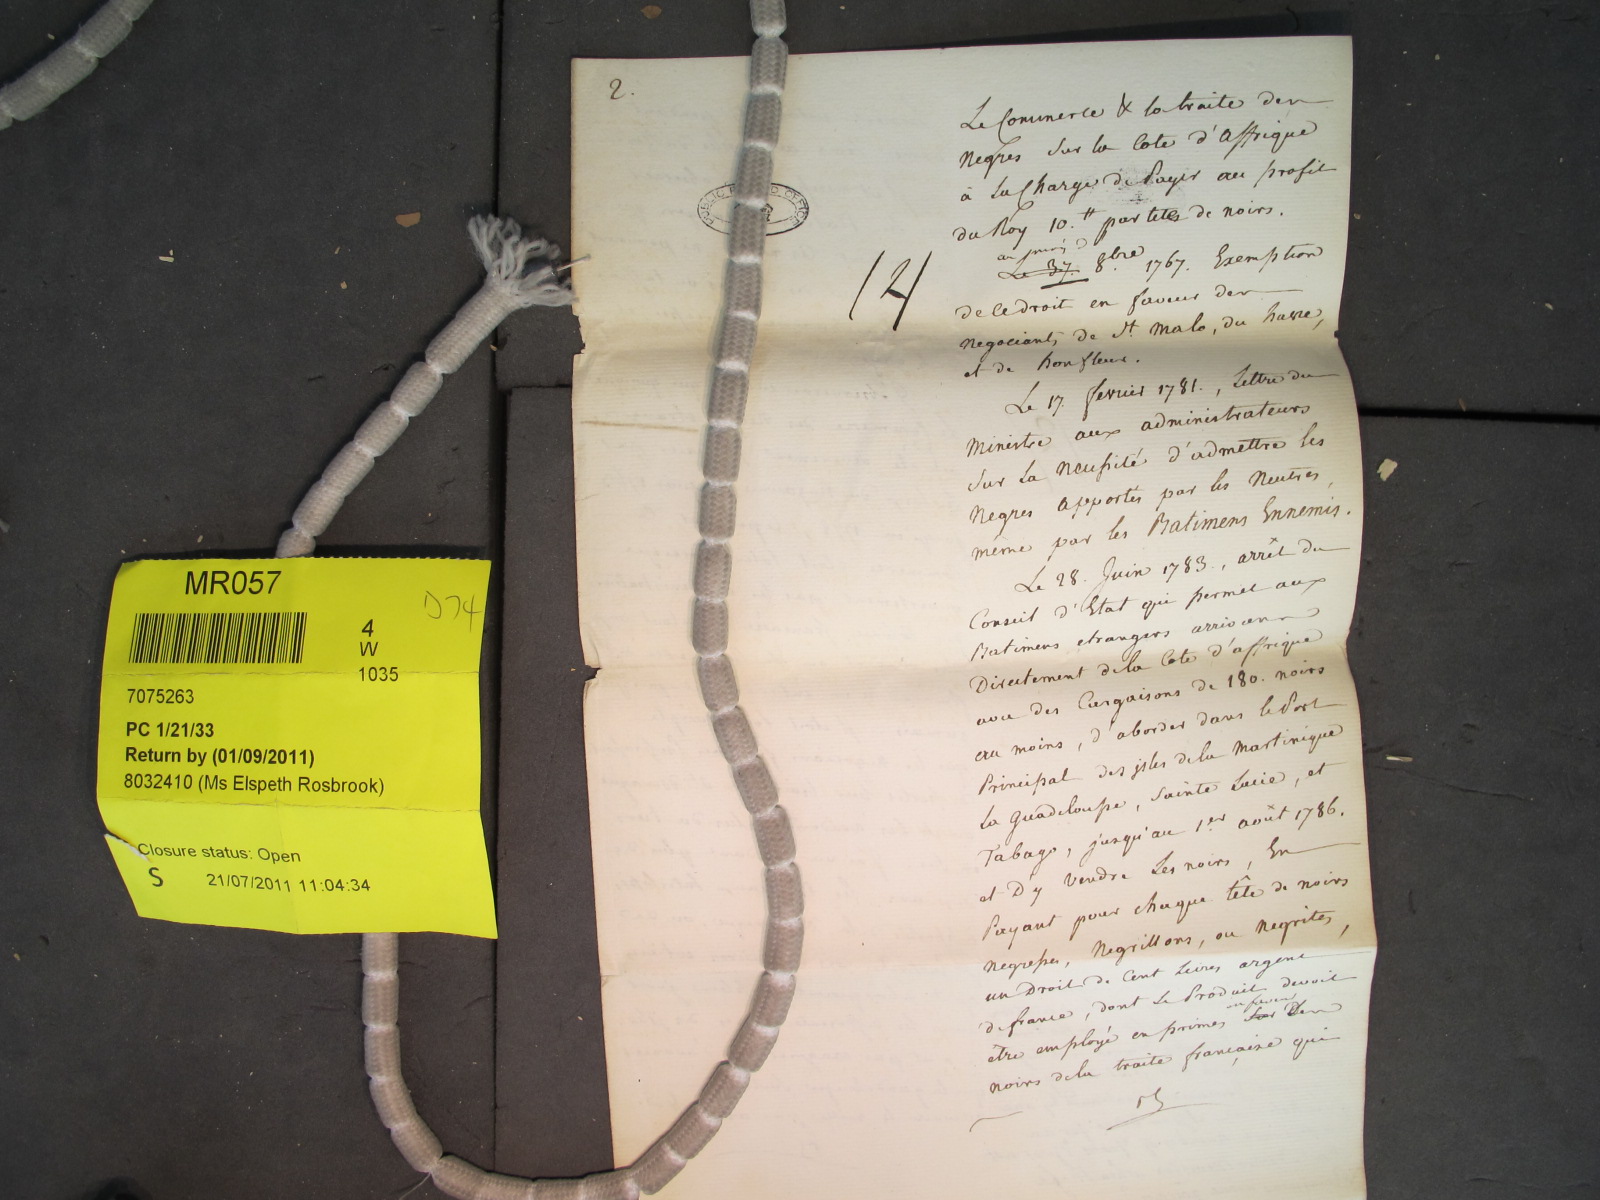 2.
PUBLIC RECORD OFFICE
14
Le Commerce & la traite des
Negres sur la Cote d'Affrique
à la Charge de Payer au profit
du Roy 10.tt par têtes de noirs.
Le 37. 8.bre 1767. Exemption
de ce droit en faveur des
negociants de St. Malo, du havre,
et de honfleur.
Le 17. fevrier 1781., Lettre du
Ministre aux administrateurs
sur la necessité d'admettre les
Negres apportés par les Neutres,
même par les Batimens Ennemis.
Le 28. Juin 1783., arrêt du
Conseil d'Etat qui permet aux
Batimens etrangers arrivans
Directement de la Cote d'affrique
avec des Cargaisons de 180. noirs
au moins, d'aborder dans le Port
Principal des isles de la Martinique
La Guadeloupe, Sainte Lucie, et
Tabago, jusqu'au 1.er août 1786.
et D'y vendre Les noirs, En
Payant pour chaque tête de noirs
negresses, Negrillons, ou negrites,
un Droit de Cent Livres argent
de france, dont Le Produit devoit
en faveur
être employé en primes sur Des
noirs de la traite française qui
MR057
D74
4
W
1035
7075263
PC 1/21/33
Return by (01/09/2011)
8032410 (Ms Elspeth Rosbrook)
Closure status: Open
S 21/07/2011 11:04:34